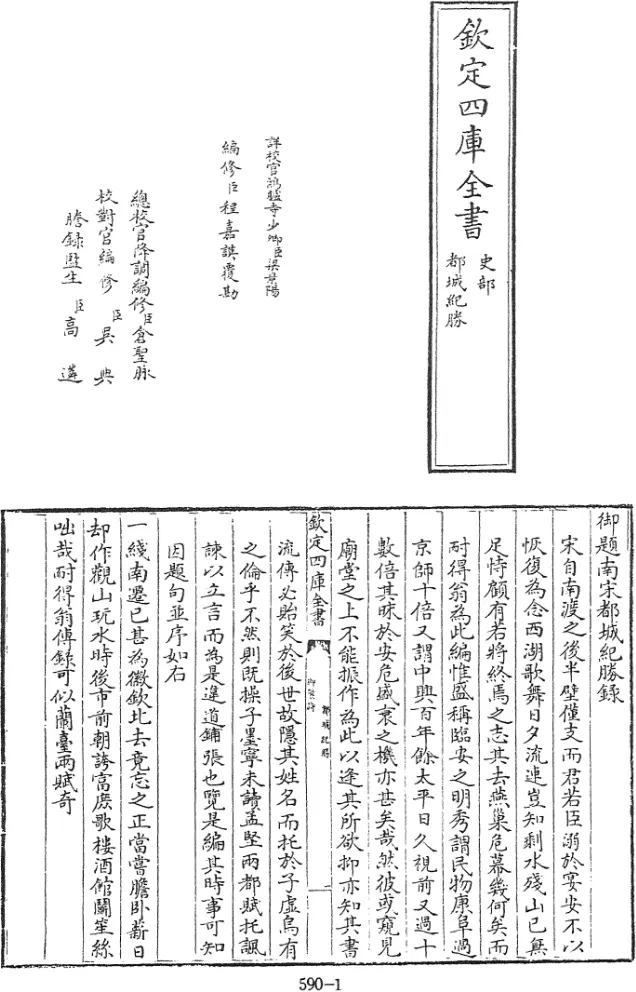 欽定四庫全書
史部
都城紀勝
詳校官鴻臚寺少卿臣梁景陽
編修臣程嘉謨覆勘
總校官降調編修臣倉聖脉
校對官編修臣吳典
謄錄監生臣高遴
御題南宋都城紀勝錄
宋自南渡之後半壁僅支而君若臣溺於宴安不以
恢復為念西湖歌舞日夕流連豈知剩水殘山已無
足恃顧有若將終焉之志其去燕巢危幕幾何矣而
耐得翁為此編惟盛稱臨安之明秀謂民物康阜過
京師十倍又謂中興百年餘太平日久視前又過十
數倍其昧於安危盛衰之機亦甚矣哉然彼或窺見
廟堂之上不能振作為此以逢其所欲抑亦知其書
欽定四庫全書
御製詩
都城紀勝
一
流傳必貽笑於後世故隱其姓名而托於子虛烏有
之倫乎不然則既操子墨寧未讀孟堅兩都賦托諷
諫以立言而為是違道鋪張也覽是編其時事可知
因題句並序如右
一綫南遷已甚為徽欽北去竟忘之正當嘗膽卧薪日
却作觀山玩水時後市前朝誇富庶歌樓酒館鬭笙絲
咄哉耐得翁傳錄可似蘭臺兩賦奇
590-1